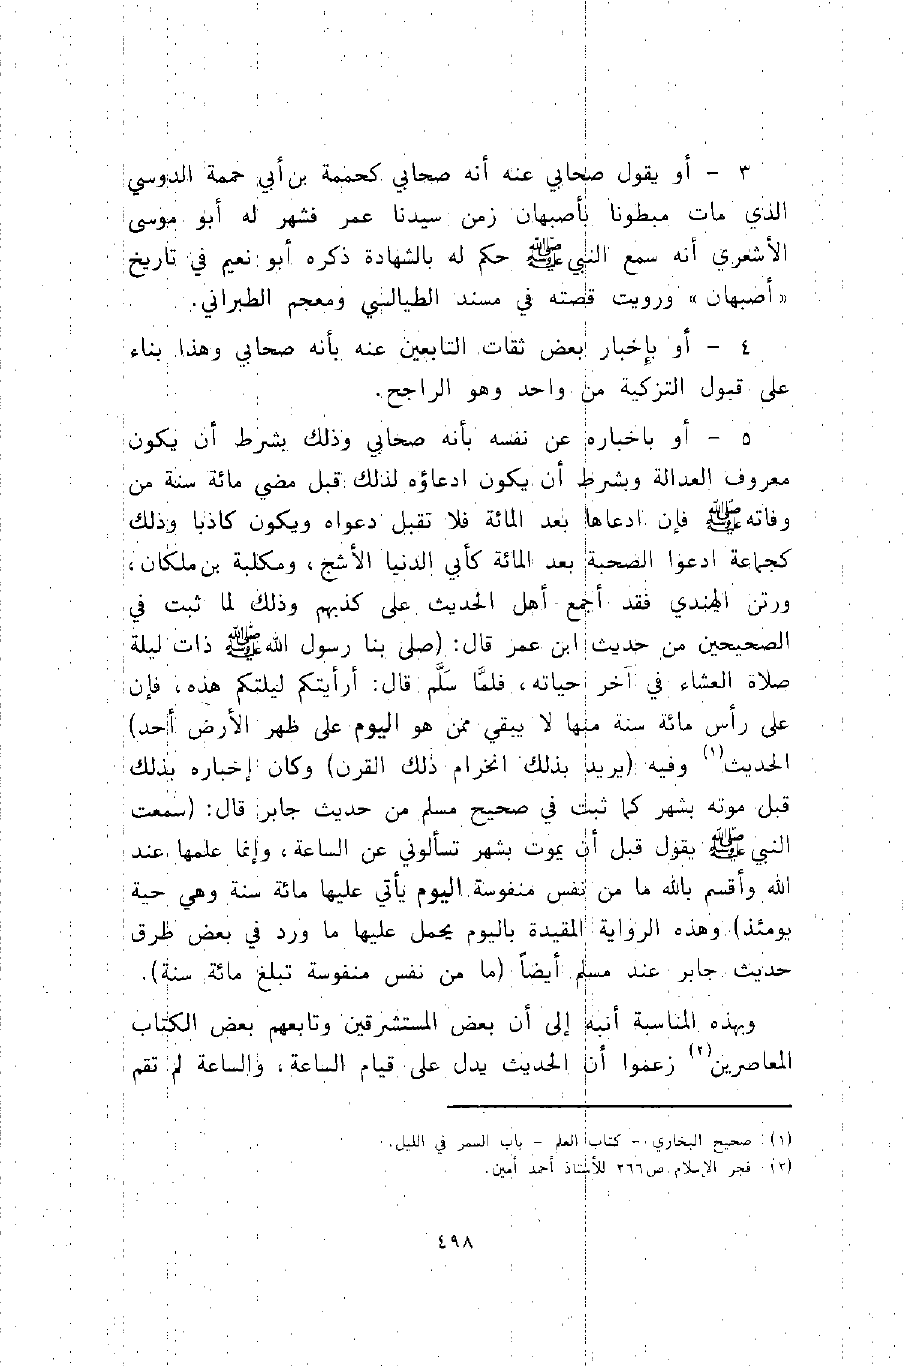 ٣ - أو يقول صحابي عنه أنه صحابي كحممة بن أبي حممة الدوسي
الذي مات مبطونا بأصبهان زمن سيدنا عمر فشهر له أبو موسى
الأشعري أنه سمع النبي ﷺ حكم له بالشهادة ذكره أبو نعيم في تاريخ
« أصبهان » ورويت قصته في مسند الطيالسي ومعجم الطبراني.
٤ - أو بإخبار بعض ثقات التابعين عنه بأنه صحابي وهذا بناء
على قبول التزكية من واحد وهو الراجح.
٥ - أو باخباره عن نفسه بأنه صحابي وذلك بشرط أن يكون
معروف العدالة وبشرط أن يكون ادعاؤه لذلك قبل مضي مائة سنة من
وفاته ﷺ فإن ادعاها بعد المائة فلا تقبل دعواه ويكون كاذبا وذلك
كجماعة ادعوا الصحبة بعد المائة كأبي الدنيا الأشج ، ومكلبة بن ملكان ،
ورتن الهندي فقد أجمع أهل الحديث على كذبهم وذلك لما ثبت في
الصحيحين من حديث ابن عمر قال: (صلى بنا رسول الله ﷺ ذات ليلة
صلاة العشاء في آخر حياته، فلمَّا سَلَّم قال: أرأيتكم ليلتكم هذه، فإن
على رأس مائة سنة منها لا يبقي ممن هو اليوم على ظهر الأرض أحد)
الحديث(١) وفيه (يريد بذلك انخرام ذلك القرن) وكان إخباره بذلك
قبل موته بشهر كما ثبت في صحيح مسلم من حديث جابر قال: (سمعت
النبي ﷺ يقول قبل أن يموت بشهر تسألوني عن الساعة، وإنما علمها عند
الله وأقسم بالله ما من نفس منفوسة اليوم يأتي عليها مائة سنة وهي حية
يومئذ) وهذه الرواية المقيدة باليوم يحمل عليها ما ورد في بعض طرق
حديث جابر عند مسلم أيضاً (ما من نفس منفوسة تبلغ مائة سنة).
وبهذه المناسبة أنبه إلى أن بعض المستشرقين وتابعهم بعض الكتاب
المعاصرين(٢) زعموا أن الحديث يدل على قيام الساعة، والساعة لم تقم
(١) صحيح البخاري - كتاب العلم - باب السمر في الليل.
(٢) فجر الإسلام ص٢٦٦ للأستاذ أحمد أمين.
٤٩٨